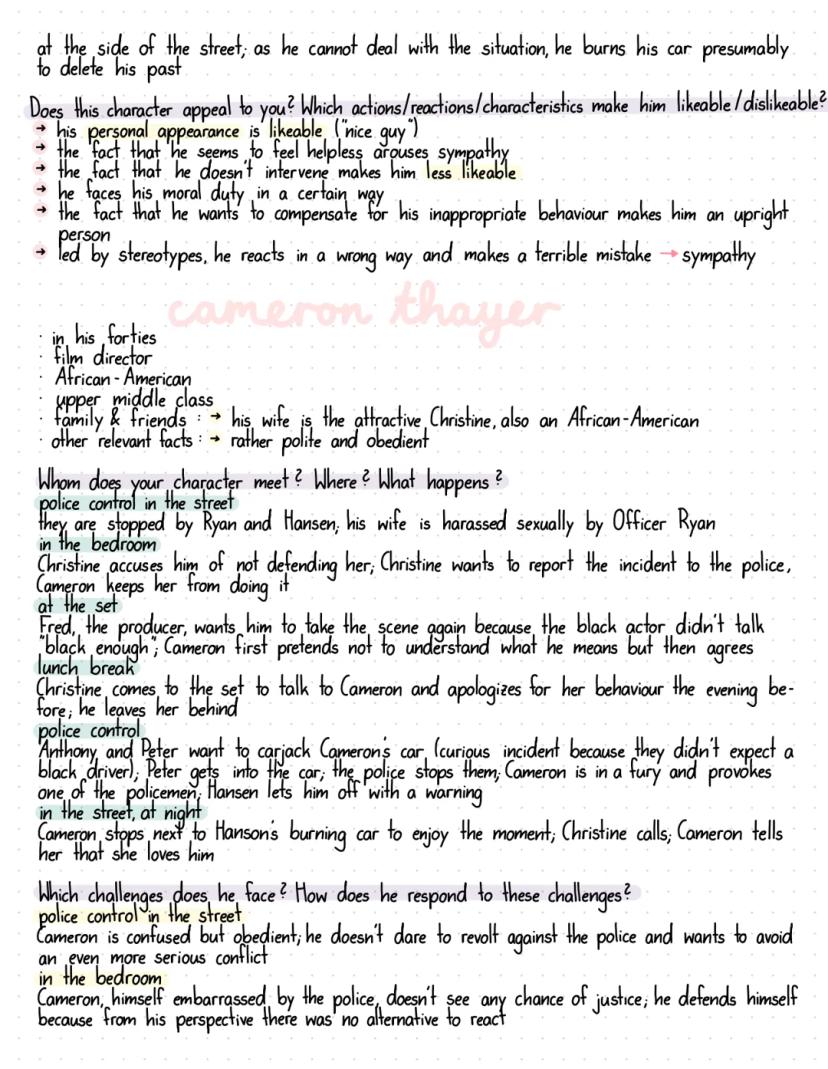 at the side of the street; as he cannot deal with the situation, he burns his car presumably
to delete his past
Does this character appeal to you? Which actions/reactions/characteristics make him likeable/dislikeable?
→ his personal appearance is likeable ("nice guy")
→ the fact that he seems to feel helpless arouses sympathy
→ the fact that he doesn't intervene makes him less likeable
→ he faces his moral duty in a certain way
→ the fact that he wants to compensate for his inappropriate behaviour makes him an upright
person
→ led by stereotypes, he reacts in a wrong way and makes a terrible mistake → sympathy
cameron thayer
· in his forties
· film director
· African-American
· upper middle class
· family & friends : → his wife is the attractive Christine, also an African-American
· other relevant facts : → rather polite and obedient
Whom does your character meet? Where? What happens?
police control in the street
they are stopped by Ryan and Hansen; his wife is harassed sexually by Officer Ryan
in the bedroom
Christine accuses him of not defending her; Christine wants to report the incident to the police,
Cameron keeps her from doing it
at the set
Fred, the producer, wants him to take the scene again because the black actor didn't talk
"black enough"; Cameron first pretends not to understand what he means but then agrees
lunch break
Christine comes to the set to talk to Cameron and apologizes for her behaviour the evening be-
fore; he leaves her behind
police control
Anthony and Peter want to carjack Cameron's car (curious incident because they didn't expect a
black driver); Peter gets into the car; the police stops them; Cameron is in a fury and provokes
one of the policemen; Hansen lets him off with a warning
in the street, at night
Cameron stops next to Hanson's burning car to enjoy the moment; Christine calls; Cameron tells
her that she loves him
Which challenges does he face? How does he respond to these challenges?
police control in the street
Cameron is confused but obedient; he doesn't dare to revolt against the police and wants to avoid
an even more serious conflict
in the bedroom
Cameron, himself embarrassed by the police, doesn't see any chance of justice; he defends himself
because from his perspective there was no alternative to react